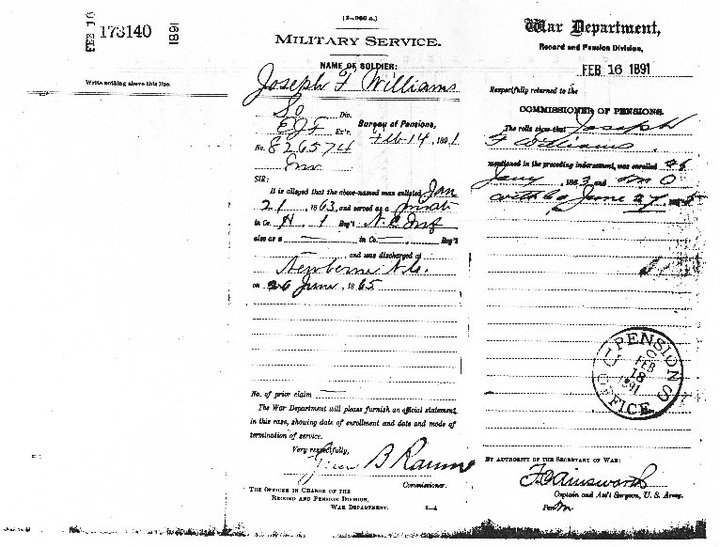 FEB 16
173140
1891
Write nothing above this line.
(3-060 a.)
MILITARY SERVICE.
NAME OF SOLDIER:
Joseph F Williams
So Div.
E J F Ex'r.
Bureau of Pensions,
No. 826574
Feb 14, 1891
Inv
SIR:
It is alleged that the above-named man enlisted Jan
21, 1863, and served as a private
in Co. H, 1 Reg't N.C. Inf
also as a in Co. , Reg't
and was discharged at
Newberne N.C.
on 26 June, 1865
No. of prior claim
The War Department will please furnish an official statement
in this case, showing date of enrollment and date and mode of
termination of service.
Very respectfully,
Green B Raum
Commissioner.
THE OFFICER IN CHARGE OF THE
RECORD AND PENSION DIVISION,
WAR DEPARTMENT.
War Department,
Record and Pension Division,
FEB 16 1891
Respectfully returned to the
COMMISSIONER OF PENSIONS.
The rolls show that Joseph
F Williams
mentioned in the preceding indorsement, was enrolled
Jany , 1863 and M O
with Co June 27,
U.S. PENSION OFFICE
FEB
18
1891
BY AUTHORITY OF THE SECRETARY OF WAR:
F C Ainsworth
Captain and Ass't Surgeon, U. S. Army.
Per M